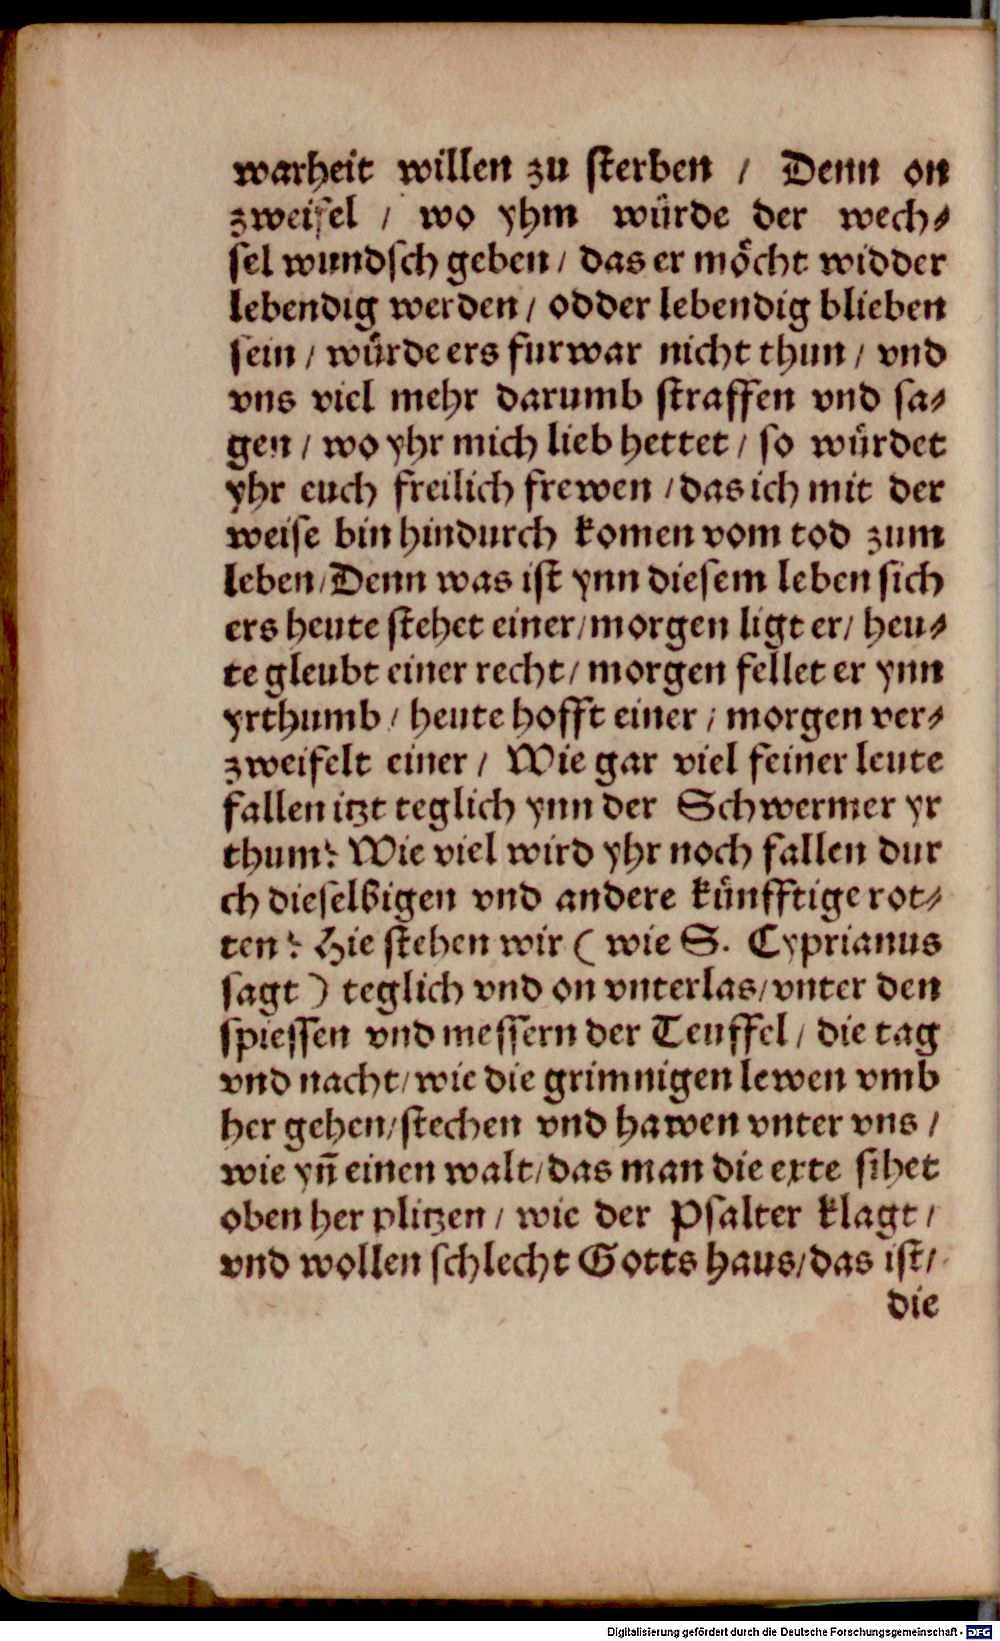 warheit willen zu ſterben / Denn on
zweifel / wo yhm würde der wech⸗
ſel wundſch geben / das er möcht widder
lebendig werden / odder lebendig blieben
ſein / würde ers fur war nicht thun / vnd
vns viel mehr darumb ſtraffen vnd ſa⸗
gen / wo yhr mich lieb hettet / ſo würdet
yhr euch freilich frewen / das ich mit der
weiſe bin hindurch komen vom tod zum
leben / Denn was iſt ynn dieſem leben ſich
ers heute ſtehet einer / morgen ligt er / heu⸗
te gleubt einer recht / morgen fellet er ynn
yrthumb / heute hofft einer / morgen ver⸗
zweifelt einer / Wie gar viel feiner leute
fallen itzt teglich ynn der Schwermer yr
thum? Wie viel wird yhr noch fallen dur
ch dieſelbigen vnd andere künfftige rot⸗
ten? Hie ſtehen wir ( wie S. Cyprianus
ſagt ) teglich vnd on vnterlas / vnter den
ſpieſſen vnd meſſern der Teuffel / die tag
vnd nacht / wie die grimnigen lewen vmb
her gehen / ſtechen vnd hawen vnter vns /
wie yñ einen walt / das man die exte ſihet
oben her plitzen / wie der Pſalter klagt /
vnd wollen ſchlecht Gotts haus / das iſt /
die
Digitalisierung gefördert durch die Deutsche Forschungsgemeinschaft - DFG